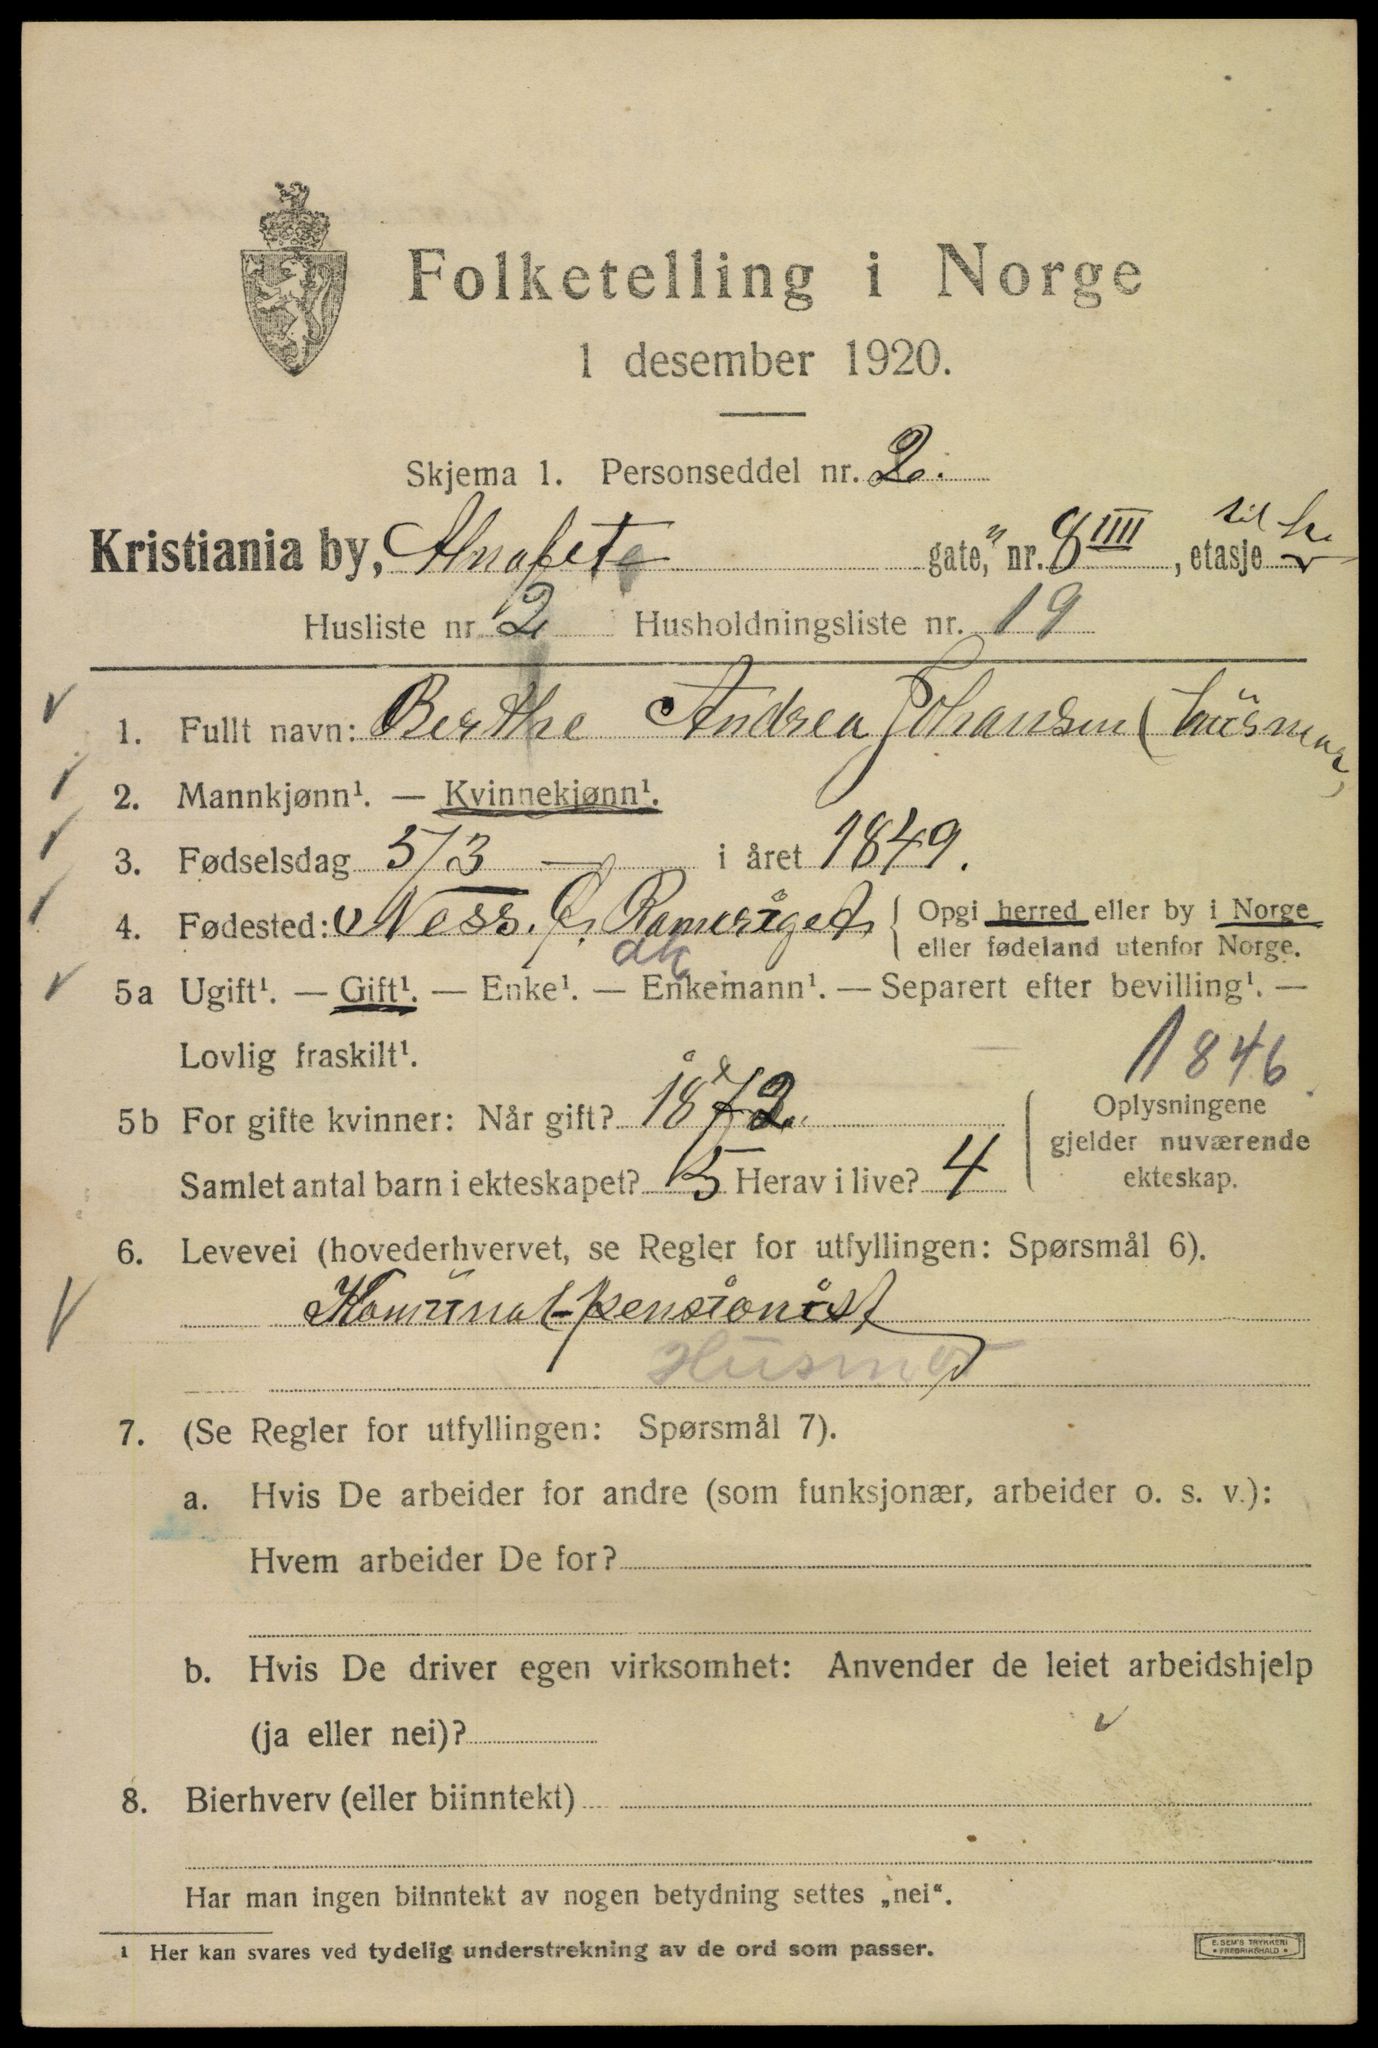 Folketelling i Norge
1 desember 1920.
Skjema 1. Personseddel nr. 2.
Kristiania by, Alnafeta gate, nr. 8 IIII, etasje til h.
Husliste nr. 2 Husholdningsliste nr. 19
1. Fullt navn: Berthe Andrea Johansen (Husmor)
2. Mannkjønn¹. — Kvinnekjønn¹.
3. Fødselsdag 5/3 — i året 1849.
4. Fødested: Ness. P. Rameriget { Opgi herred eller by i Norge
eller fødeland utenfor Norge.
ak
5a Ugift¹. — Gift¹. — Enke¹. — Enkemann¹. — Separert efter bevilling¹. —
Lovlig fraskilt¹.
1846
5b For gifte kvinner: Når gift? 1872. { Oplysningene
gjelder nuværende
ekteskap.
Samlet antal barn i ekteskapet? 5 Herav i live? 4
6. Levevei (hovederhvervet, se Regler for utfyllingen: Spørsmål 6).
Komunal-pensionist
Husmor
7. (Se Regler for utfyllingen: Spørsmål 7).
a. Hvis De arbeider for andre (som funksjonær, arbeider o. s. v.):
Hvem arbeider De for?
b. Hvis De driver egen virksomhet: Anvender de leiet arbeidshjelp
(ja eller nei)?
8. Bierhverv (eller biinntekt)
Har man ingen biinntekt av nogen betydning settes „nei“.
¹ Her kan svares ved tydelig understrekning av de ord som passer.
E. SEM'S TRYKKERI
• FREDRIKSHALD •